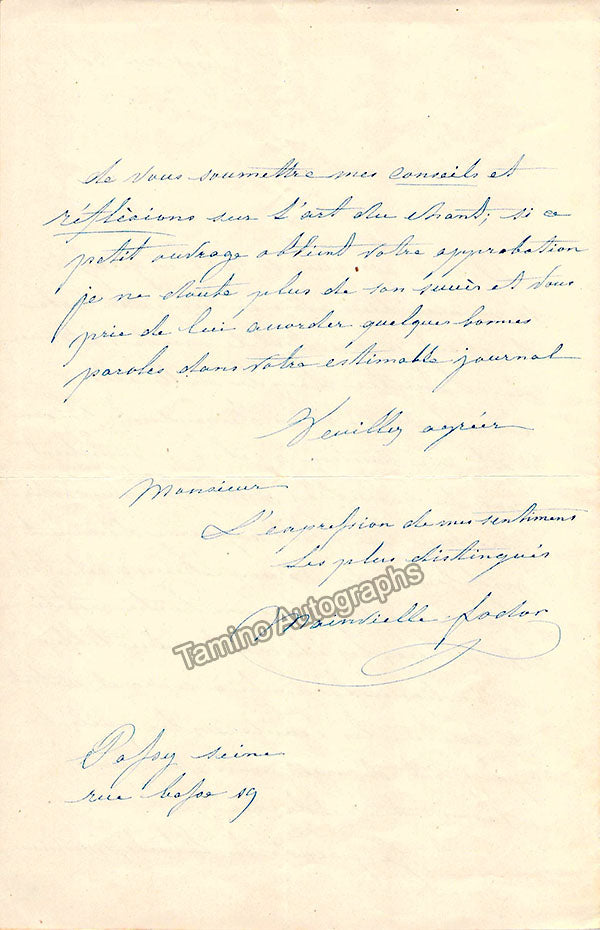 de vous soumettre mes conseils et
réflècions sur l'art du chant; si ce
petit ouvrage obtient votre approbation
je ne doute plus de son succès et vous
prie de lui accorder quelques bonnes
paroles dans votre estimable journal
Veuillez agréer
Monsieur
L'expression de mes sentimens
les plus distingués
Mainvielle fodor
Tamino Autographs
Passy seine
rue basse 19